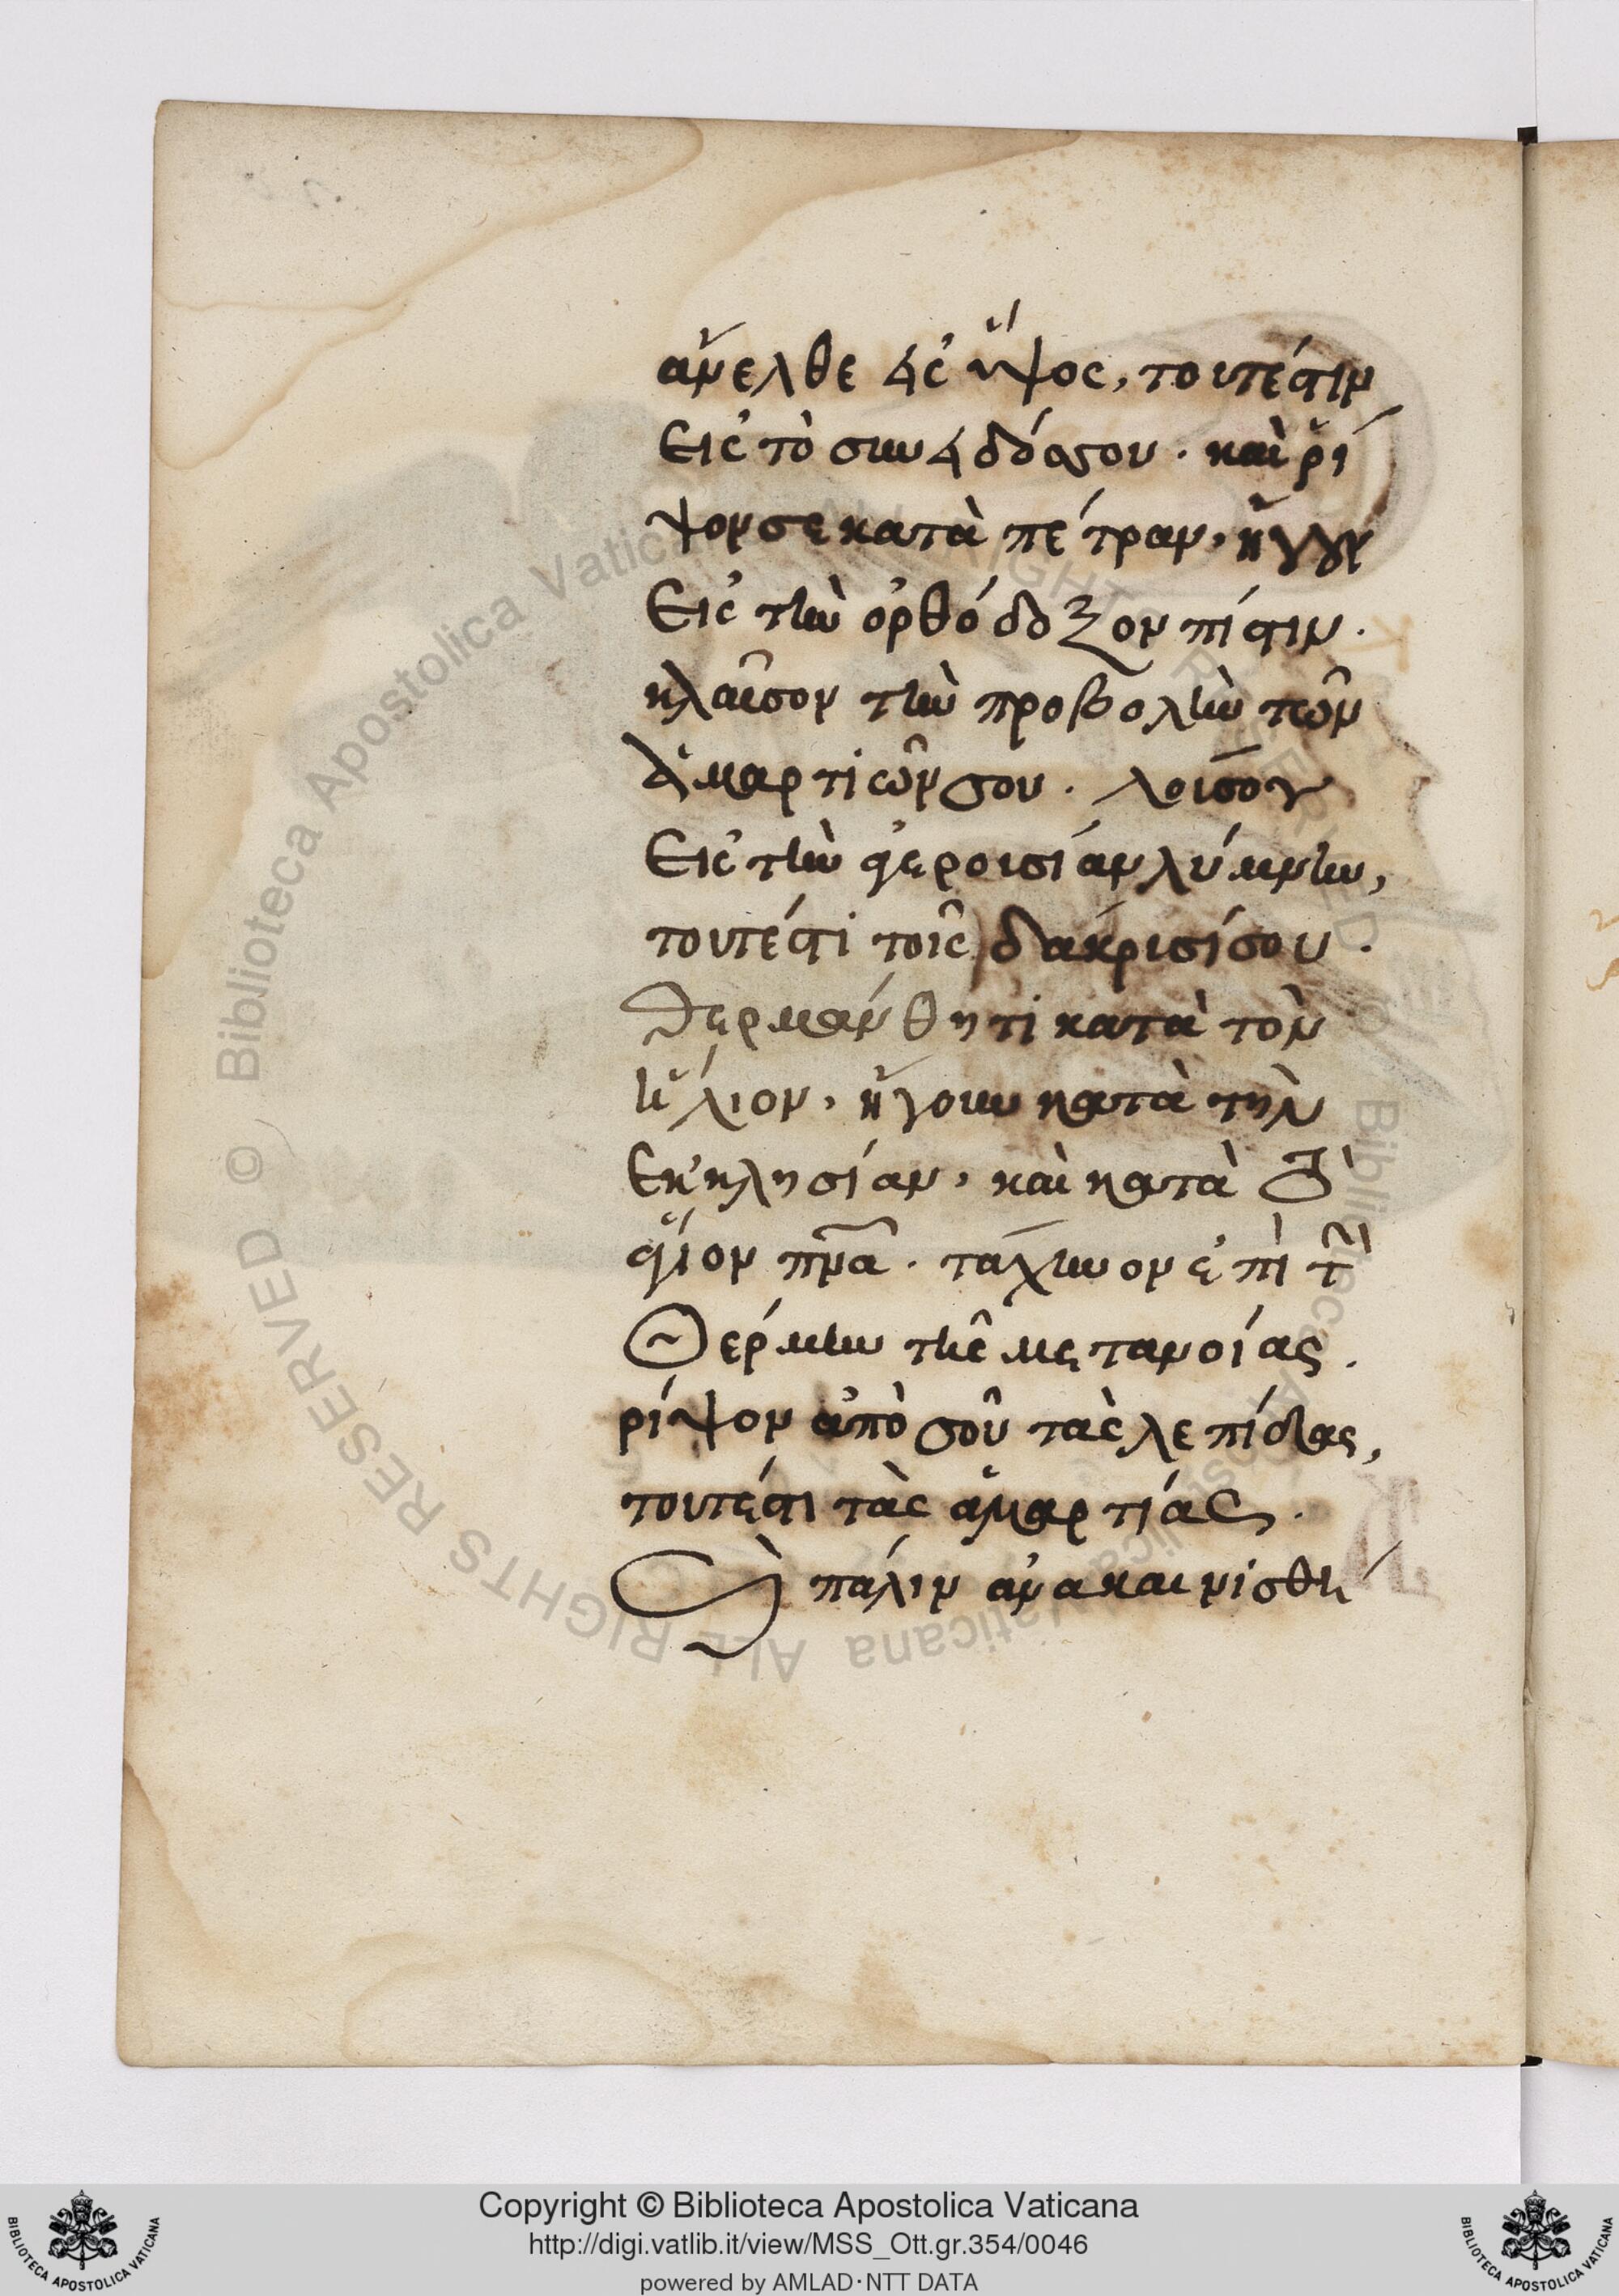 ἄνελθε εἰς ὕψος, τουτέστιν
εἰς τὸ συνειδόσσου · καὶ ῥί
ψον σε κατὰ πέτραν, ἤγγουν
εἰς τὴν ὀρθόδοξον πίστιν ·
κλαῦσον τὴν προβολὴν τῶν
ἁμαρτιῶν σου · λοῦσον
εἰς τὴν στερουσίαν λύμνην,
τουτέστι τοῖς δάκρισί σου ·
θερμάνθητι κατὰ τὸν
ἥλιον, ἤγουν κατὰ τὴν
ἐκκλησίαν, καὶ κατὰ τὸ
ἅγιον πνα · τάχυνον ἐπὶ τὴν
θέρμην τῆς μετανοίας ·
ρίψον ἀπὸ σοῦ τὰς λεπίδας,
τουτέστι τὰς ἁμαρτίας ·
καὶ πάλιν ἀνακαινισθή
Biblioteca Apostolica Vaticana ALL RIGHTS RESERVED ©
Copyright © Biblioteca Apostolica Vaticana
http://digi.vatlib.it/view/MSS_Ott.gr.354/0046
powered by AMLAD·NTT DATA
BIBLIOTECA APOSTOLICA VATICANA
BIBLIOTECA APOSTOLICA VATICANA